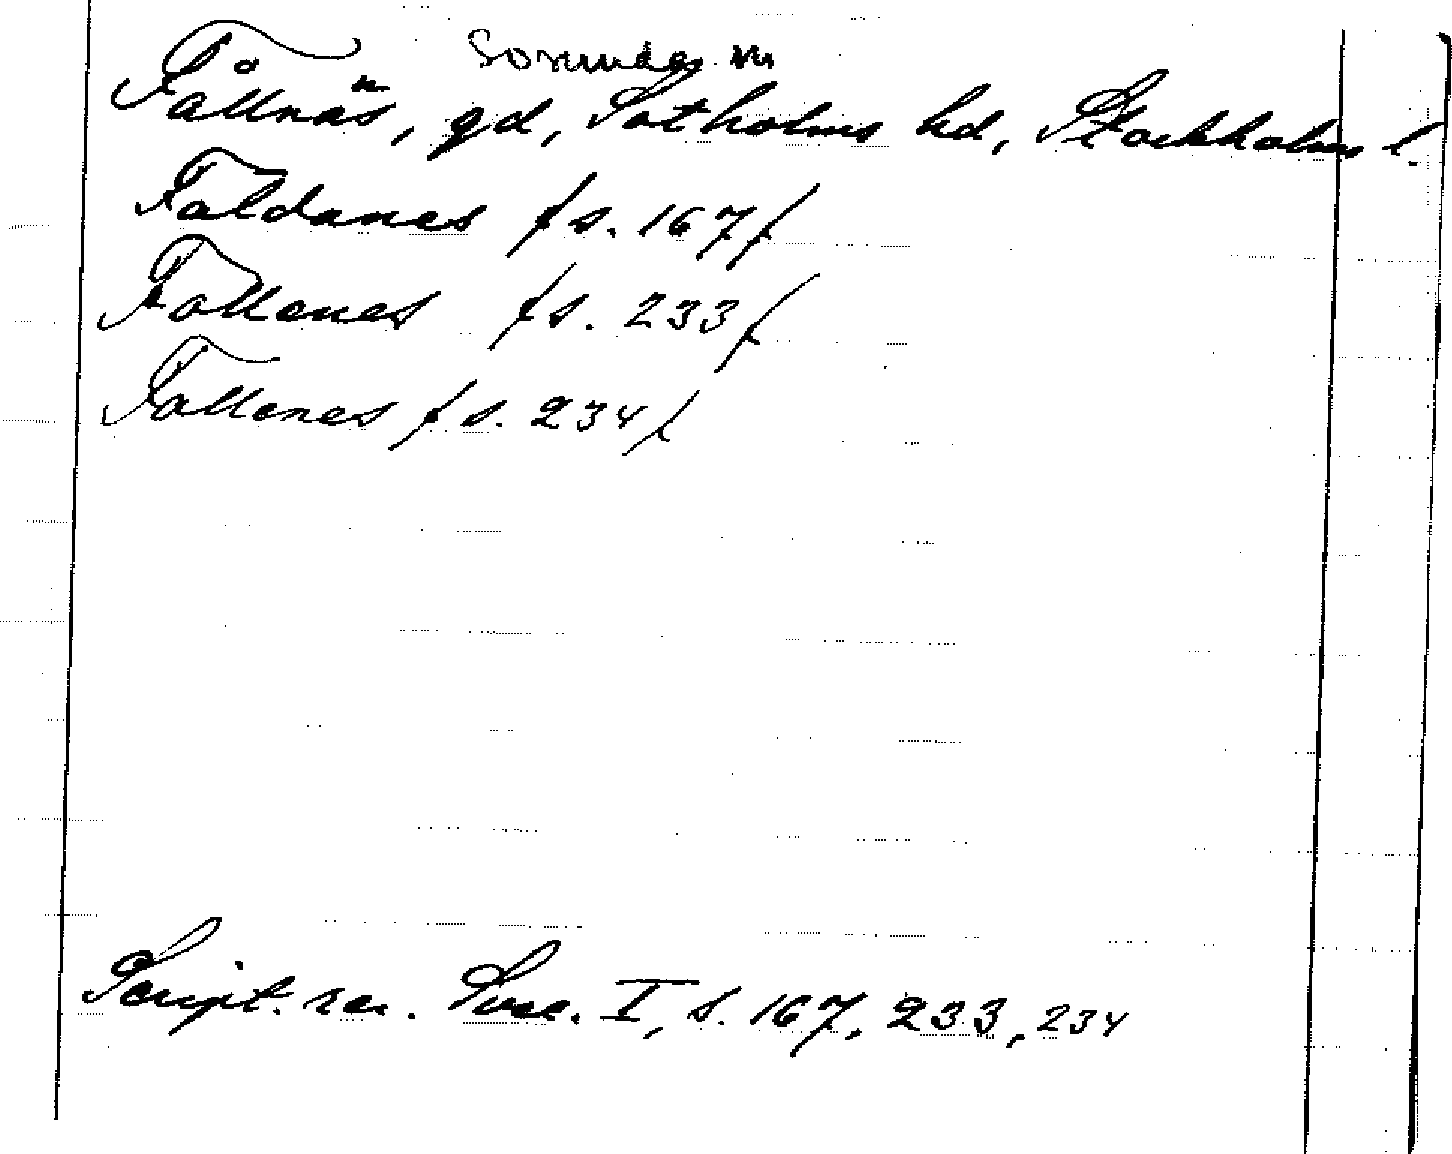 Sorunda sn
Fållnäs, gd, Sotholms hd, Stockholms l.
Foldanes /s. 167/
Follenes /s. 233/
Follenes /s. 234/
Script. rer. Svec. I, s. 167, 233, 234